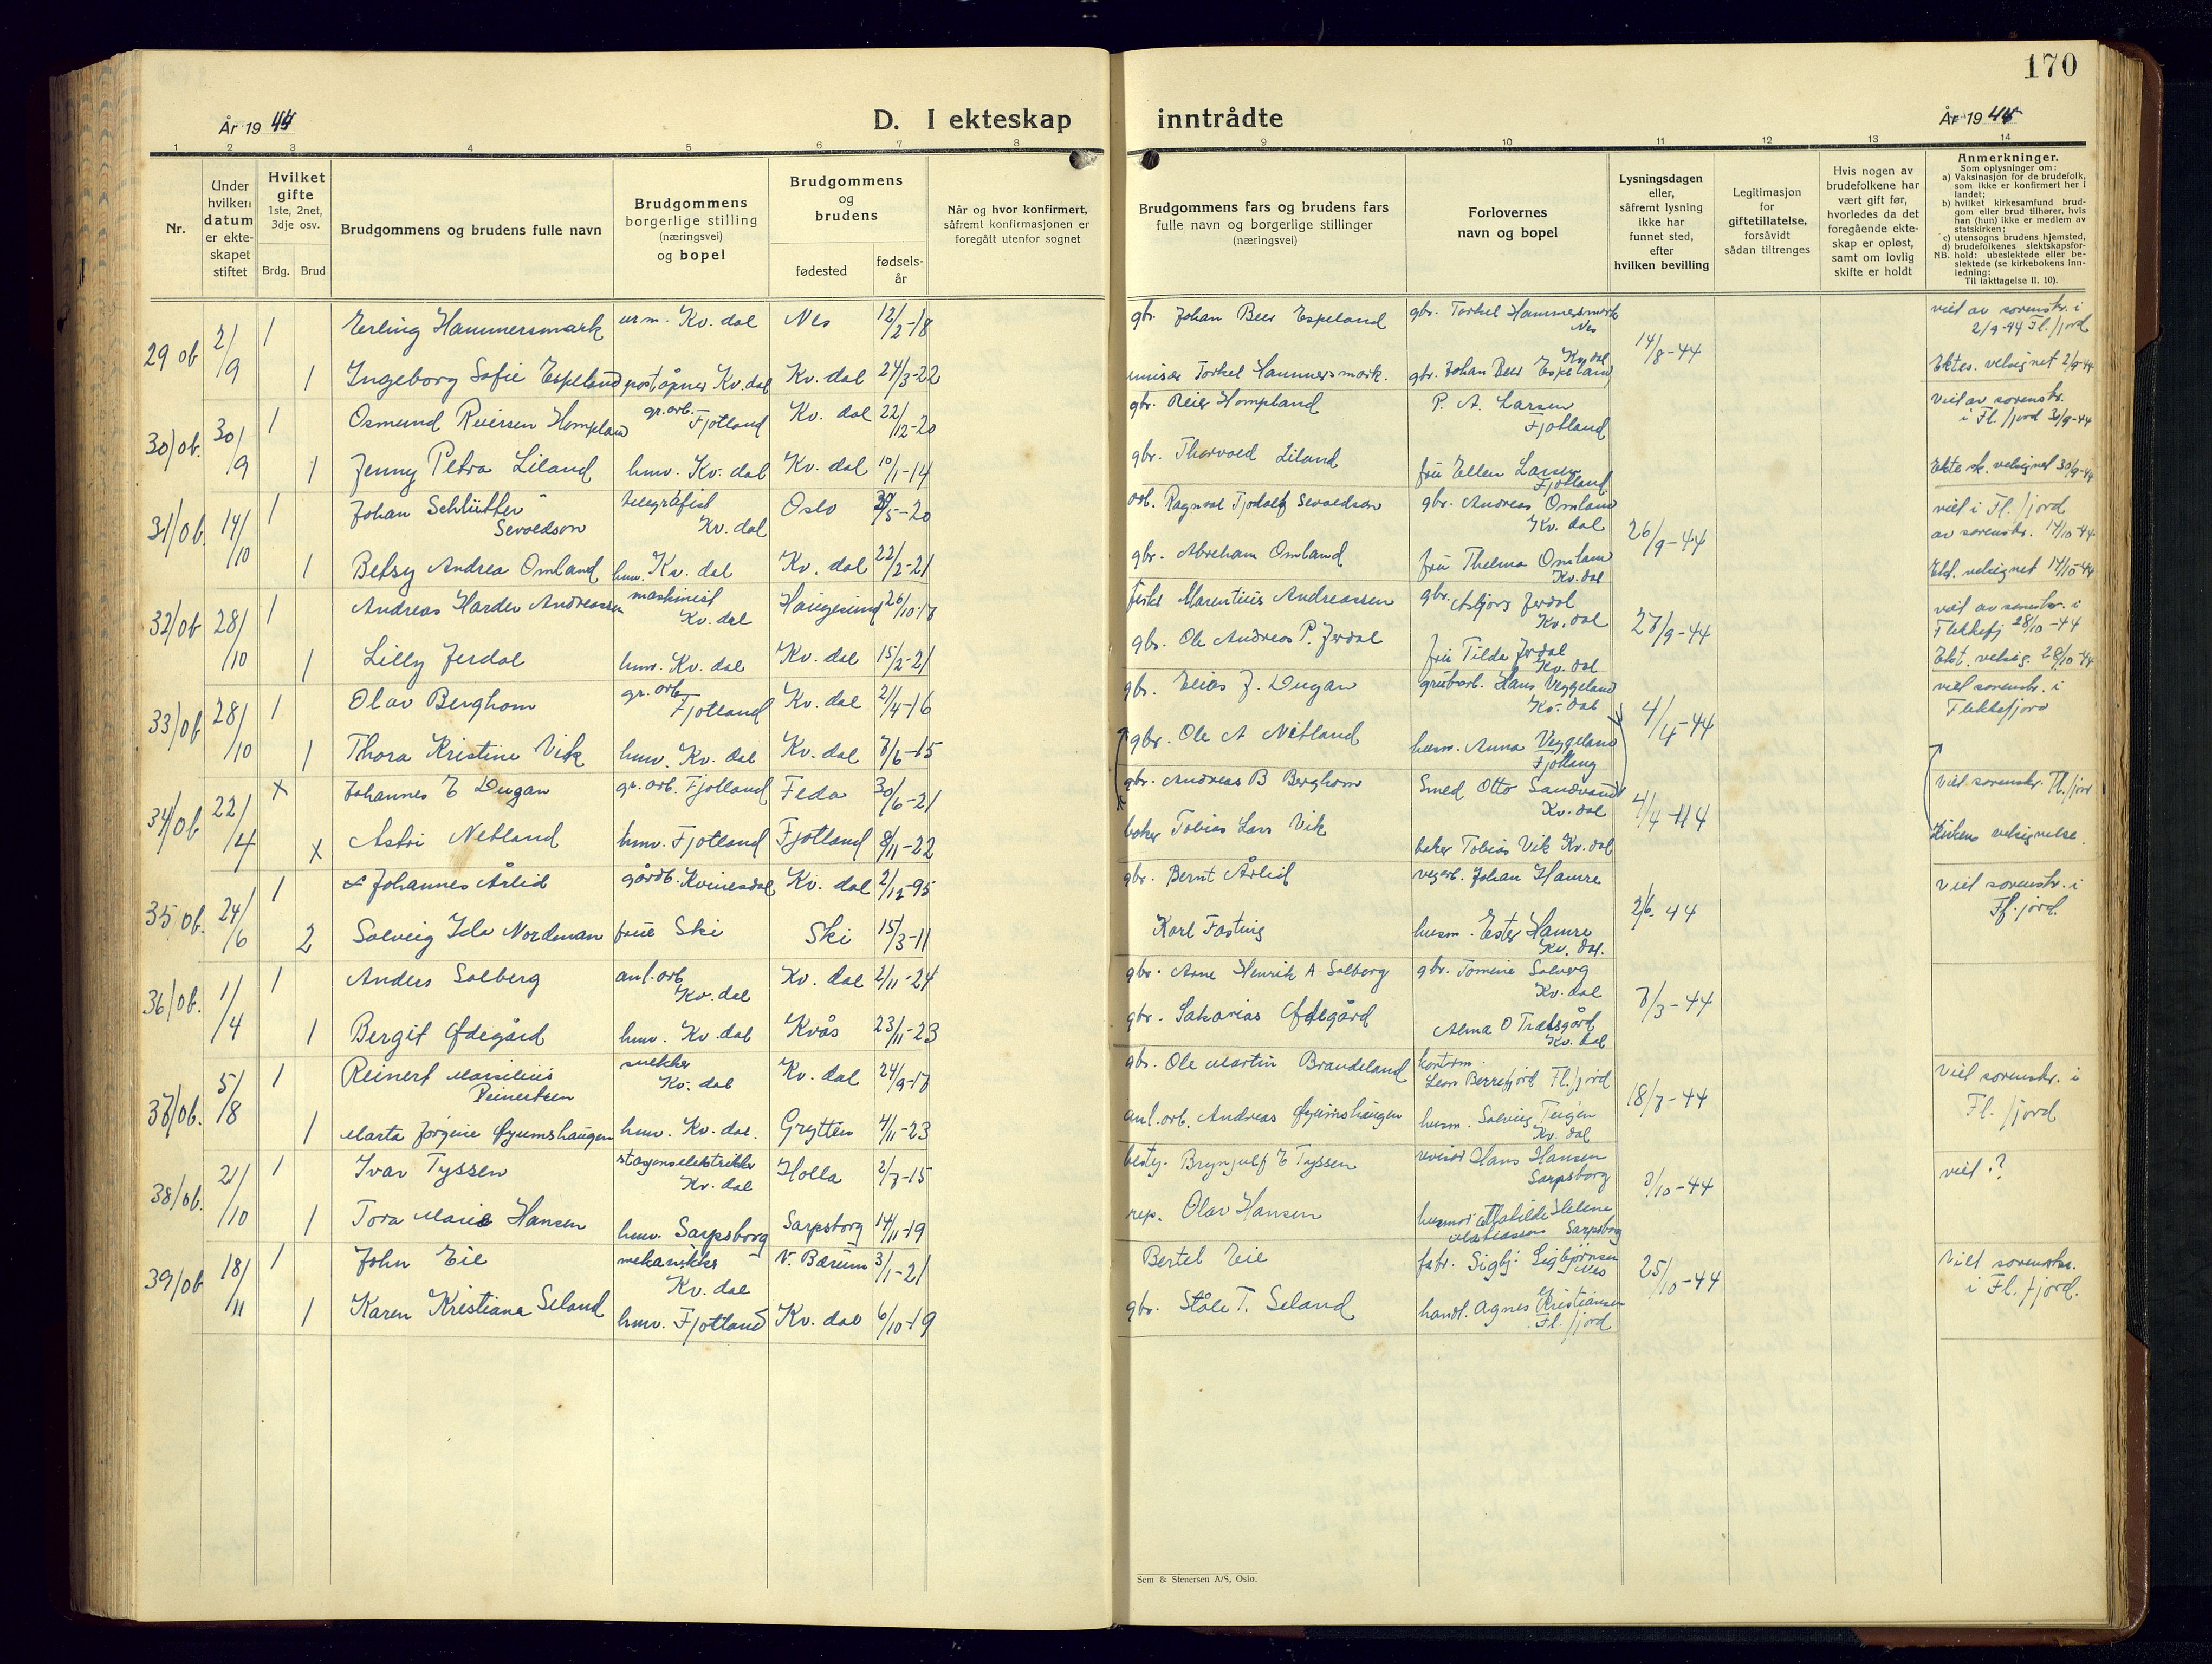 170
År 1944
D. I ekteskap inntrådte
År 1944
1 2 3 4 5 6 7 8 9 10 11 12 13 14
Nr.
Under hvilken datum er ekteskapet stiftet
Hvilket gifte 1ste, 2net, 3dje osv.
Brdg. Brud
Brudgommens og brudens fulle navn
Brudgommens borgerlige stilling (næringsvei) og bopel
Brudgommens og brudens
fødested
fødselsår
Når og hvor konfirmert, såfremt konfirmasjonen er foregått utenfor sognet
Brudgommens fars og brudens fars fulle navn og borgerlige stillinger (næringsvei)
Forlovernes navn og bopel
Lysningsdagen eller, såfremt lysning ikke har funnet sted, efter hvilken bevilling
Legitimasjon for giftetillatelse, forsåvidt sådan tiltrenges
Hvis nogen av brudefolkene har vært gift før, hvorledes da det foregående ekteskap er opløst, samt om lovlig skifte er holdt
Anmerkninger.
Som oplysninger om:
a) Vaksinasjon for de brudefolk, som ikke er konfirmert her i landet;
b) hvilket kirkesamfund brudgom eller brud tilhører, hvis han (hun) ikke er medlem av statskirken;
c) utensogns brudens hjemsted,
d) brudefolkenes slektskapsforhold: ubeslektede eller beslektede (se kirkebokens innledning:
NB.
Til iakttagelse II, 10).
29 ob 2/9 1 Erling Hammersmark urm. Kv. dal Nes 12/2-18 gbr. Johan Beer Espeland gbr. Torkel Hammersmark Nes 14/8-44 viet av sorenskr. i 2/9-44 Fl./jord
1 Ingeborg Sofie Espeland poståpner Kv. dal Kv. dal 24/3-22 Torkel Hammersmark. gbr. Johan Beer Espeland Kv. dal Ektes. velsignet 2/9-44
30/ob. 30/9 1 Osmund Reiersen Hompland gr. arb. Fjotland Kv. dal 22/12-20 gbr. Reier Hompland P. A. Larsen Fjotland Viet av sorenskr. i Fl./jord 30/9-44
1 Jenny Petra Liland hmv. Kv. dal Kv. dal 10/1-14 gbr. Thorvald Liland fru Ellen Larsen Fjotland Ektesk. velsignet 30/9-44
31/ob. 14/10 1 Johan Schlütter Sevaldson telegrafist Kv. dal Oslo /5-20 arb. Ragnval Tjodolf Sevaldson gbr. Andreas Omland Kv. dal 26/9-44 viet i Fl./jord av sorenskr. 14/10-44
1 Betsy Andrea Omland hmv. Kv. dal Kv. dal 22/2-21 gbr. Abraham Omland fru Thelma Omland Kv. dal Ekt. velsignet 14/10-44
32/ob 28/10 1 Andreas Harder Andreassen maskinist Kv. dal Haugesund 26/10-17 fisker Marentius Andreassen gbr. Asbjørg Jerdal Kv. dal 27/9-44 viet av sorenskr. i Flekkefj 28/10-44
1 Lilly Jerdal hmv. Kv. dal Kv. dal 15/2-21 gbr. Ole Andreas P. Jerdal fru Tilda Jerdal Kv. dal Ekt. velsig. 28/10-44
33/ob 28/10 1 Olav Berghom gr. arb. Fjotland Kv. dal 2/4-16 gbr. Elias J. Dugan grubarb. Hans Veggeland Kv. dal 4/4-44 viet sorenskr. i Flekkefjord
1 Thora Kristine Vik hmv. Kv. dal Kv. dal 7/6-15 gbr. Ole A Netland husm. Anna Veggeland Fjotland
34/ob 22/4 x Johannes E Dugan gr. arb. Fjotland Feda 30/6-21 gbr. Andreas B Berghom Smed Otto Sandvand Kv. dal 4/4-44 viet sorenskr. Fl./jord
x Astri Netland hmv. Fjotland Fjotland 8/11-22 baker Tobias Lars Vik baker Tobias Vik Kv. dal Kirkens velsignelse.
35/ob. 24/6 1 Johannes Årlid gårdb. Kvinesdal Kv. dal 2/12-95 gbr. Bernt Årlid vegarb. Johan Hamre 2/6-44 Viet sorenskr. i Fl.jord.
2 Solveig Ida Nordman frue Ski Ski 15/3-11 Karl Fasting husm. Ester Hamre Kv. dal.
36/ob. 1/4 1 Anders Solberg anl. arb Kv. dal Kv. dal 2/11-24 gbr. Arne Henrik A Solberg gbr. Tomine Solberg Kv. dal 7/3-44
1 Bergit Ødegård hmv. Kv. dal Kvås 23/11-23 gbr. Sakarias Ødegård Alma O Trælsgård Kv. dal
37/ob. 5/8 1 Reinert Marselius Reinertsen snekker Kv. dal Kv. dal 24/9-17 gbr. Ole Martin Brandeland kontorm. Lars Berrefjord Fl./jord 18/7-44 Viet sorenskr. i Fl./jord
1 Marta Jørgine Øyumshaugen hmv. Kv. dal. Grytten 4/11-23 anl. arb. Andreas Øyumshaugen husm. Solveig Teigen Kv. dal
38/ob. 21/10 1 Ivar Tyssen Kv. dal Holla 2/7-15 besty. Brynjulf E Tyssen revisor Hans Hansen Sarpsborg 3/10-44 viet.?
1 Tora Marie Hansen hmv. Sarpsborg Sarpsborg 14/11-19 rep. Olav Hansen husmor Matilde Helene Mathiassen Sarpsborg
39/ob 18/11 1 John Eie mekanikker Kv. dal V. Bærum 3/1-21 Bertel Eie fabr. Sigbj. Sigbjørnsen Nes 25/10-44 Viet sorenskr. i Fl. fjord.
1 Karen Kristiane Seland hmv. Fjotland Kv. dal 6/10-19 gbr. Ståle T. Seland handl. Agnes Kristiansen Fl./jord
Sem & Stenersen A/S, Oslo.